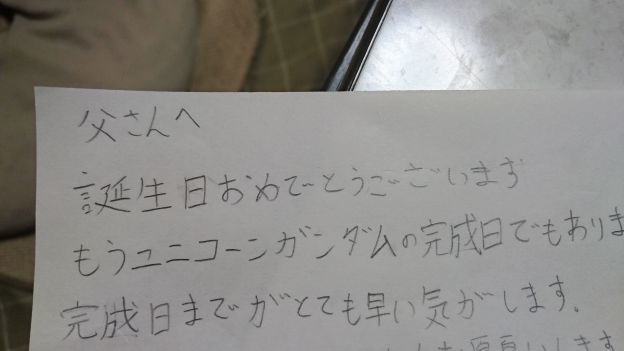 父さんへ
誕生日おめでとうございます
もうユニコーンガンダムの完成日でもありま
完成日までがとても早い気がします。
お願いします